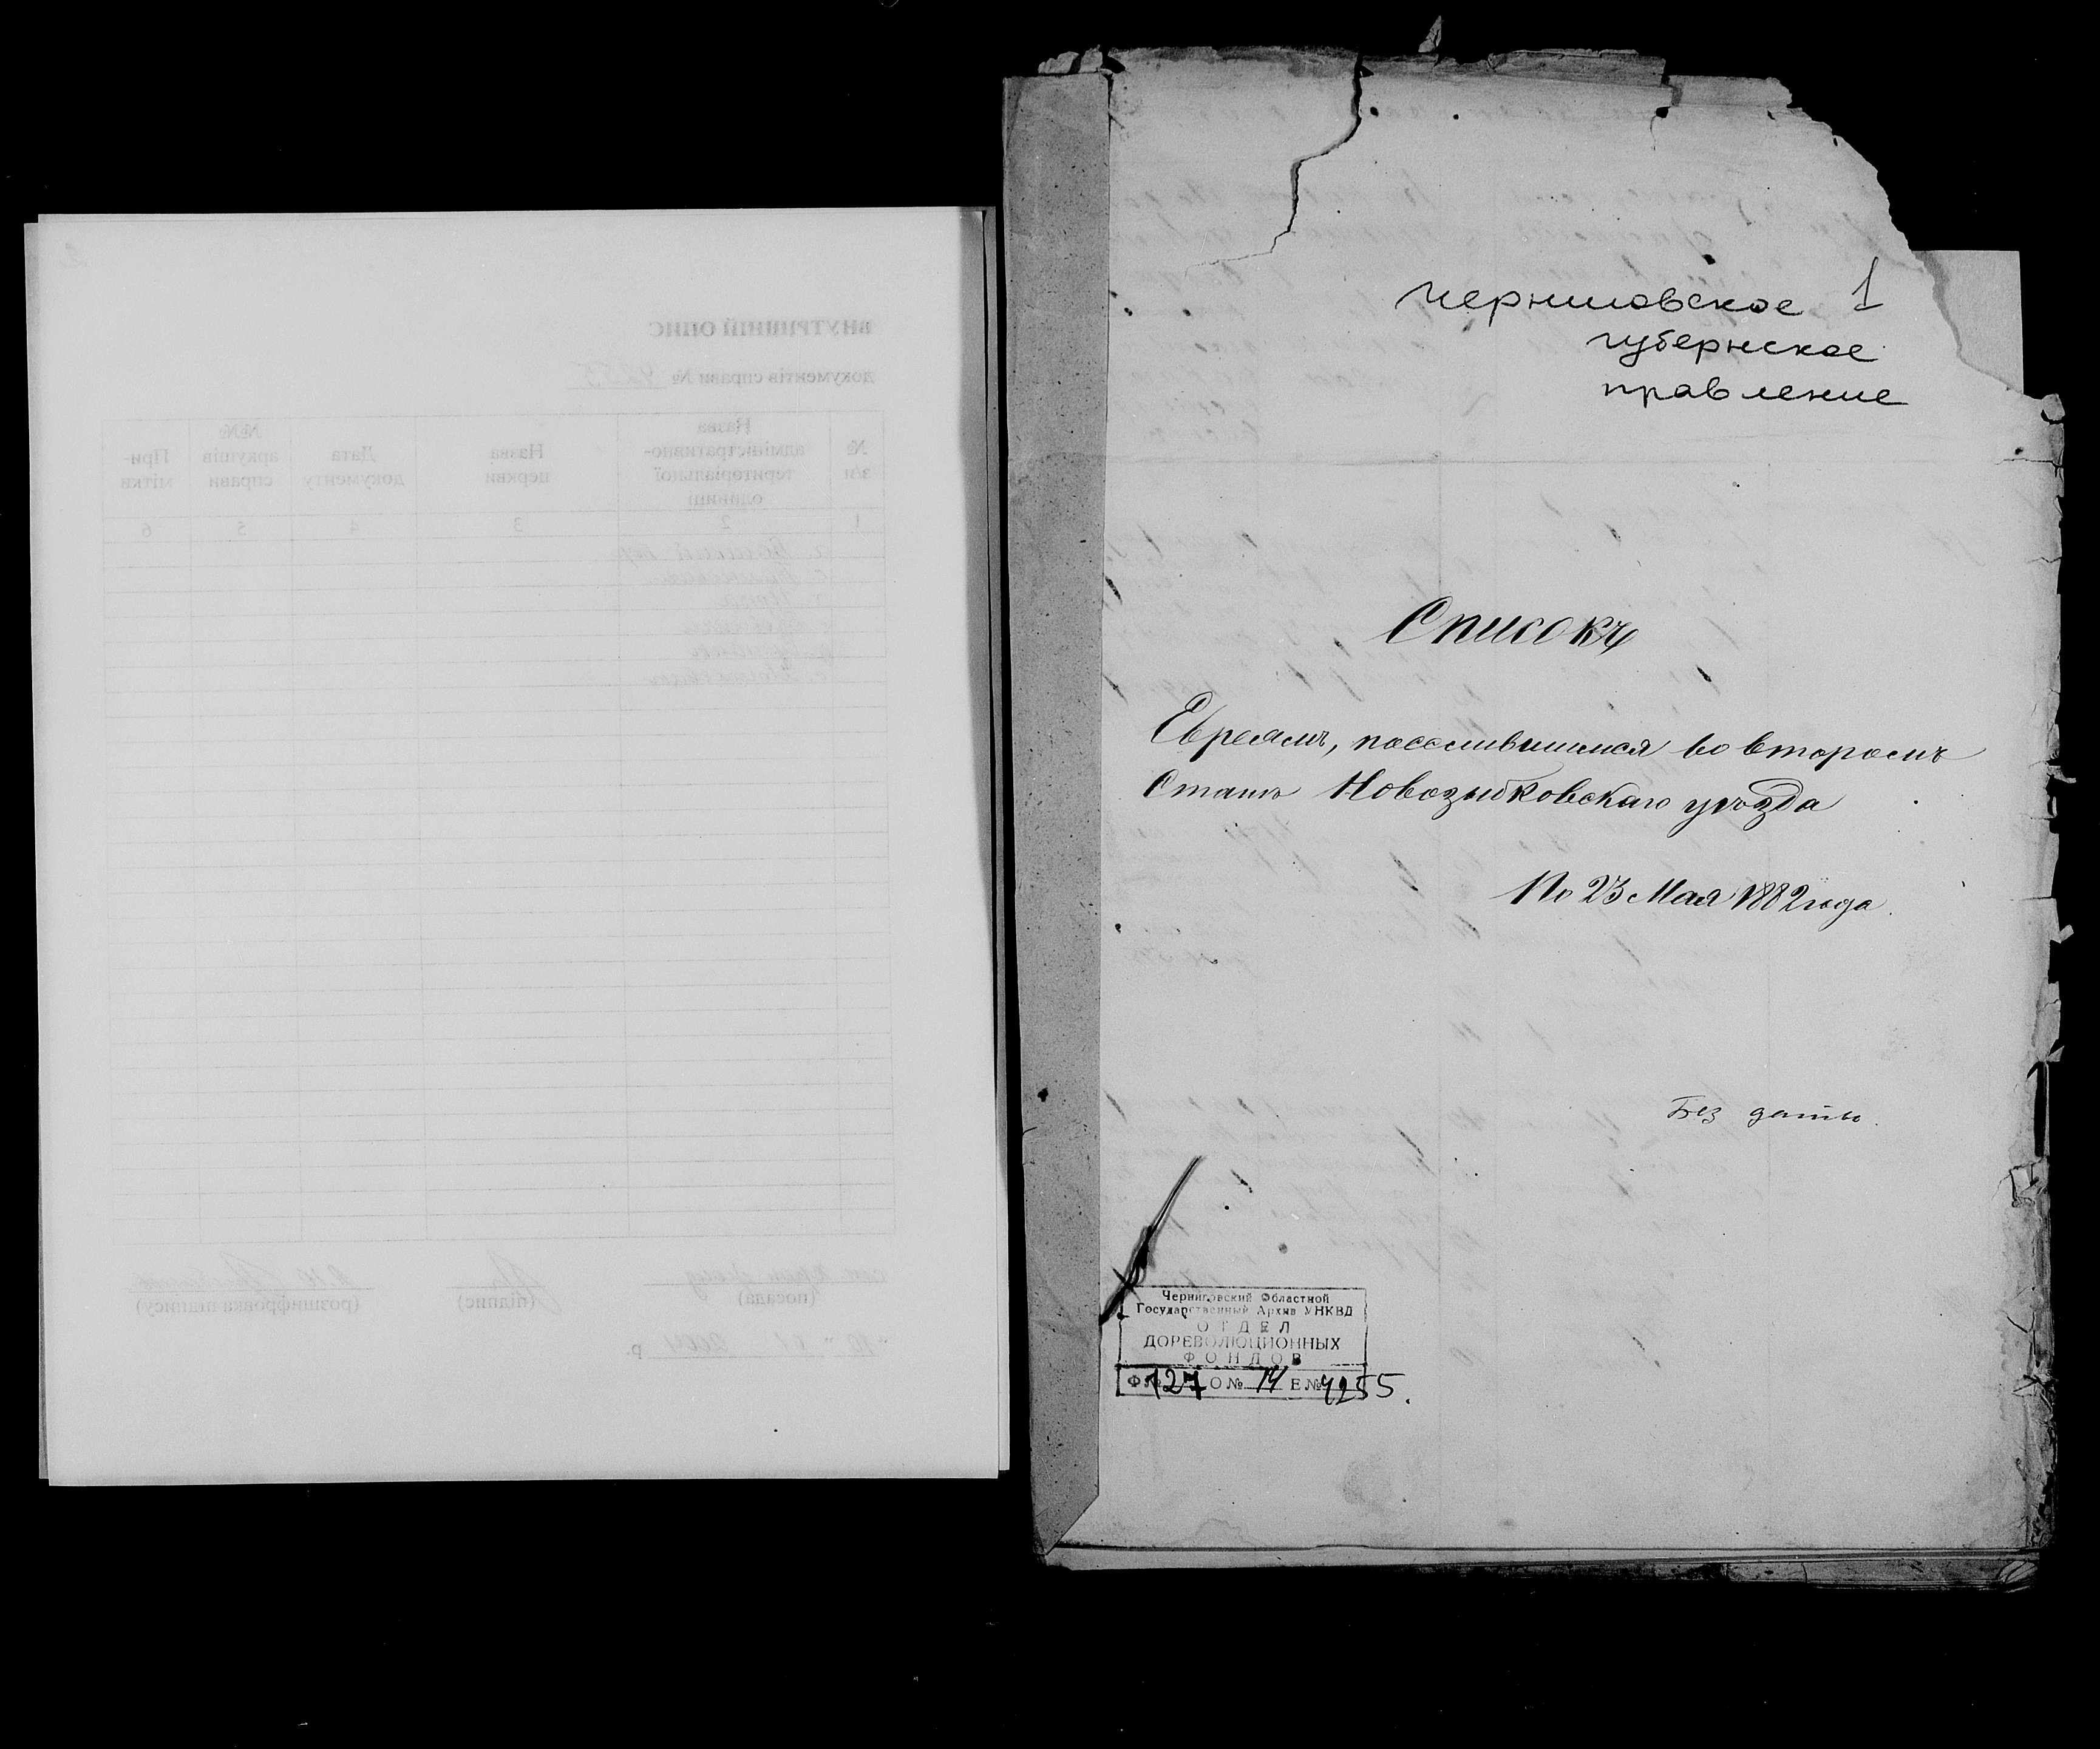 ВНУТРІШНІЙ ОПИС
документів справи № 4255
№ з/п
Назва адміністративно-територіальної одиниці
Назва церкви
Дата документу
№№ аркушів справи
При-мітки
1 2 3 4 5 6
(посада) (підпис) (розшифровка підпису)
р.
черниговское 1
губернское
правление
Списокъ
Евреямъ, поселившимся во второмъ
Станѣ Новозыбковскаго уѣзда
По 23 Мая 1882 года.
Без даты.
Черниговский Областной
Государственный Архив УНКВД
ОТДЕЛ
ДОРЕВОЛЮЦИОННЫХ
ФОНДОВ
Ф№ 127 О№ 14 Е№ 4255.